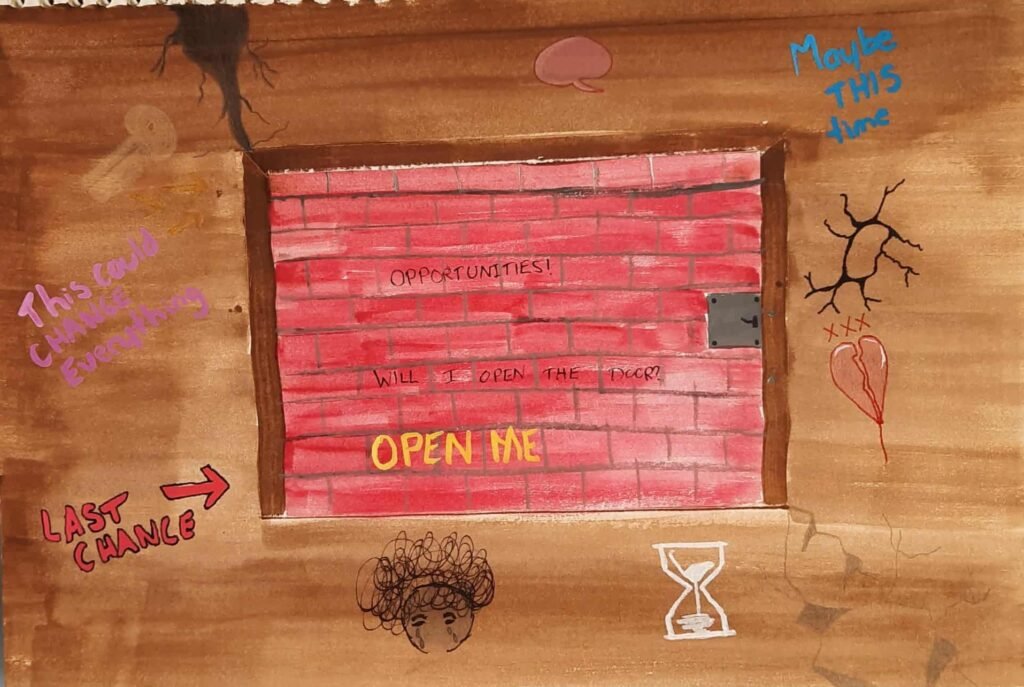 Maybe
THIS
time
This could
CHANGE
Everything
OPPORTUNITIES!
WILL I OPEN THE DOOR?
OPEN ME
LAST
CHANCE
XXX